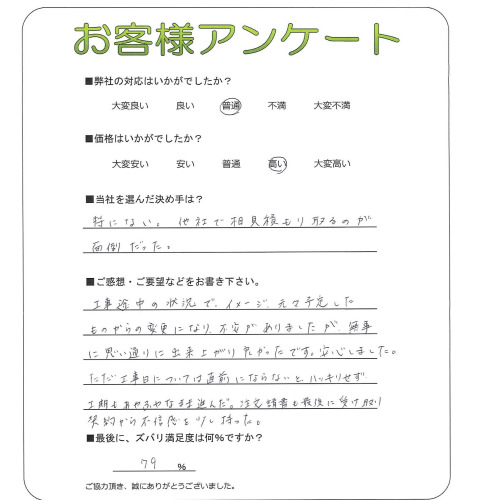 お客様アンケート
■弊社の対応はいかがでしたか？
大変良い 良い 普通 不満 大変不満
■価格はいかがでしたか？
大変安い 安い 普通 高い 大変高い
■当社を選んだ決め手は？
特にない。他社で相見積もり取るのが
面倒だった。
■ご感想・ご要望などをお書き下さい。
工事途中の状況で、イメージ、元々予定した
ものからの変更になり、不安がありましたが、無事
に思い通りに出来上がり良かったです。安心しました。
ただ工事日については直前にならないと、ハッキリせず
工期もあやふやなまま進んだ。注文請書も最後に受け取り
契約から不信感を少し持った。
■最後に、ズバリ満足度は何%ですか？
79 %
ご協力頂き、誠にありがとうございました。